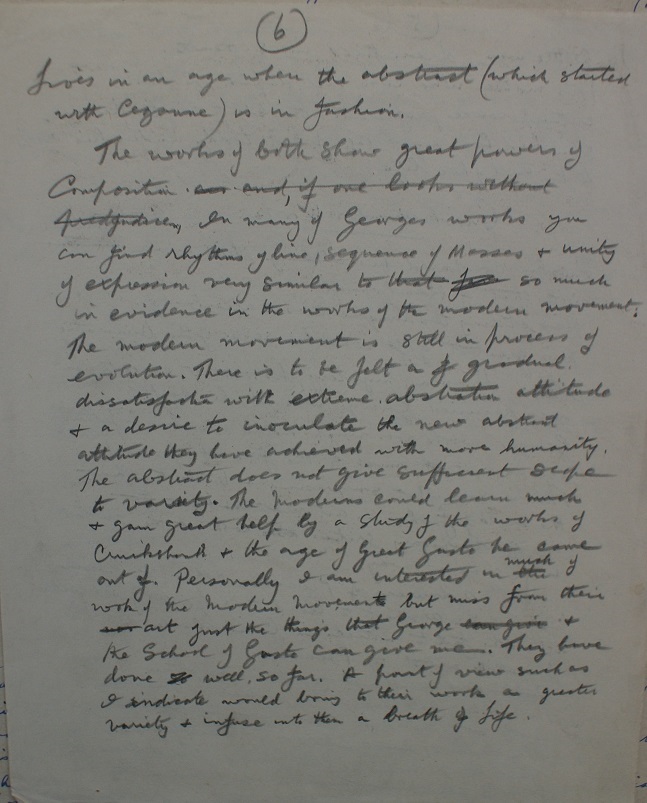 (6)
lives in an age when the abstract (which started
with Cezanne) is in fashion.
The works of both show great powers of
Composition. and, if one looks without
predjudice, In many of Georges works you
can find rhythms of line, sequence of Masses & unity
of expression very similar to that for so much
in evidence in the works of the modern movement.
The modern movement is still in process of
evolution. There is to be felt a gradual
dissatisfaction with extreme abstraction attitude
& a desire to inoculate the new abstract
attitude they have achieved with more humanity.
The abstract does not give sufficient scope
to variety. The Moderns could learn much
& gain great help by a study of the works of
Cruikshank & the age of Great Gusto he came
out of. Personally I am interested in the much of
work of the Modern Movement but miss from their
art just the things that George can give &
the School of Gusto can give me. They have
done so well, so far. A point of view such as
I indicate would bring to their work a greater
variety & infuse into them a breath of life.